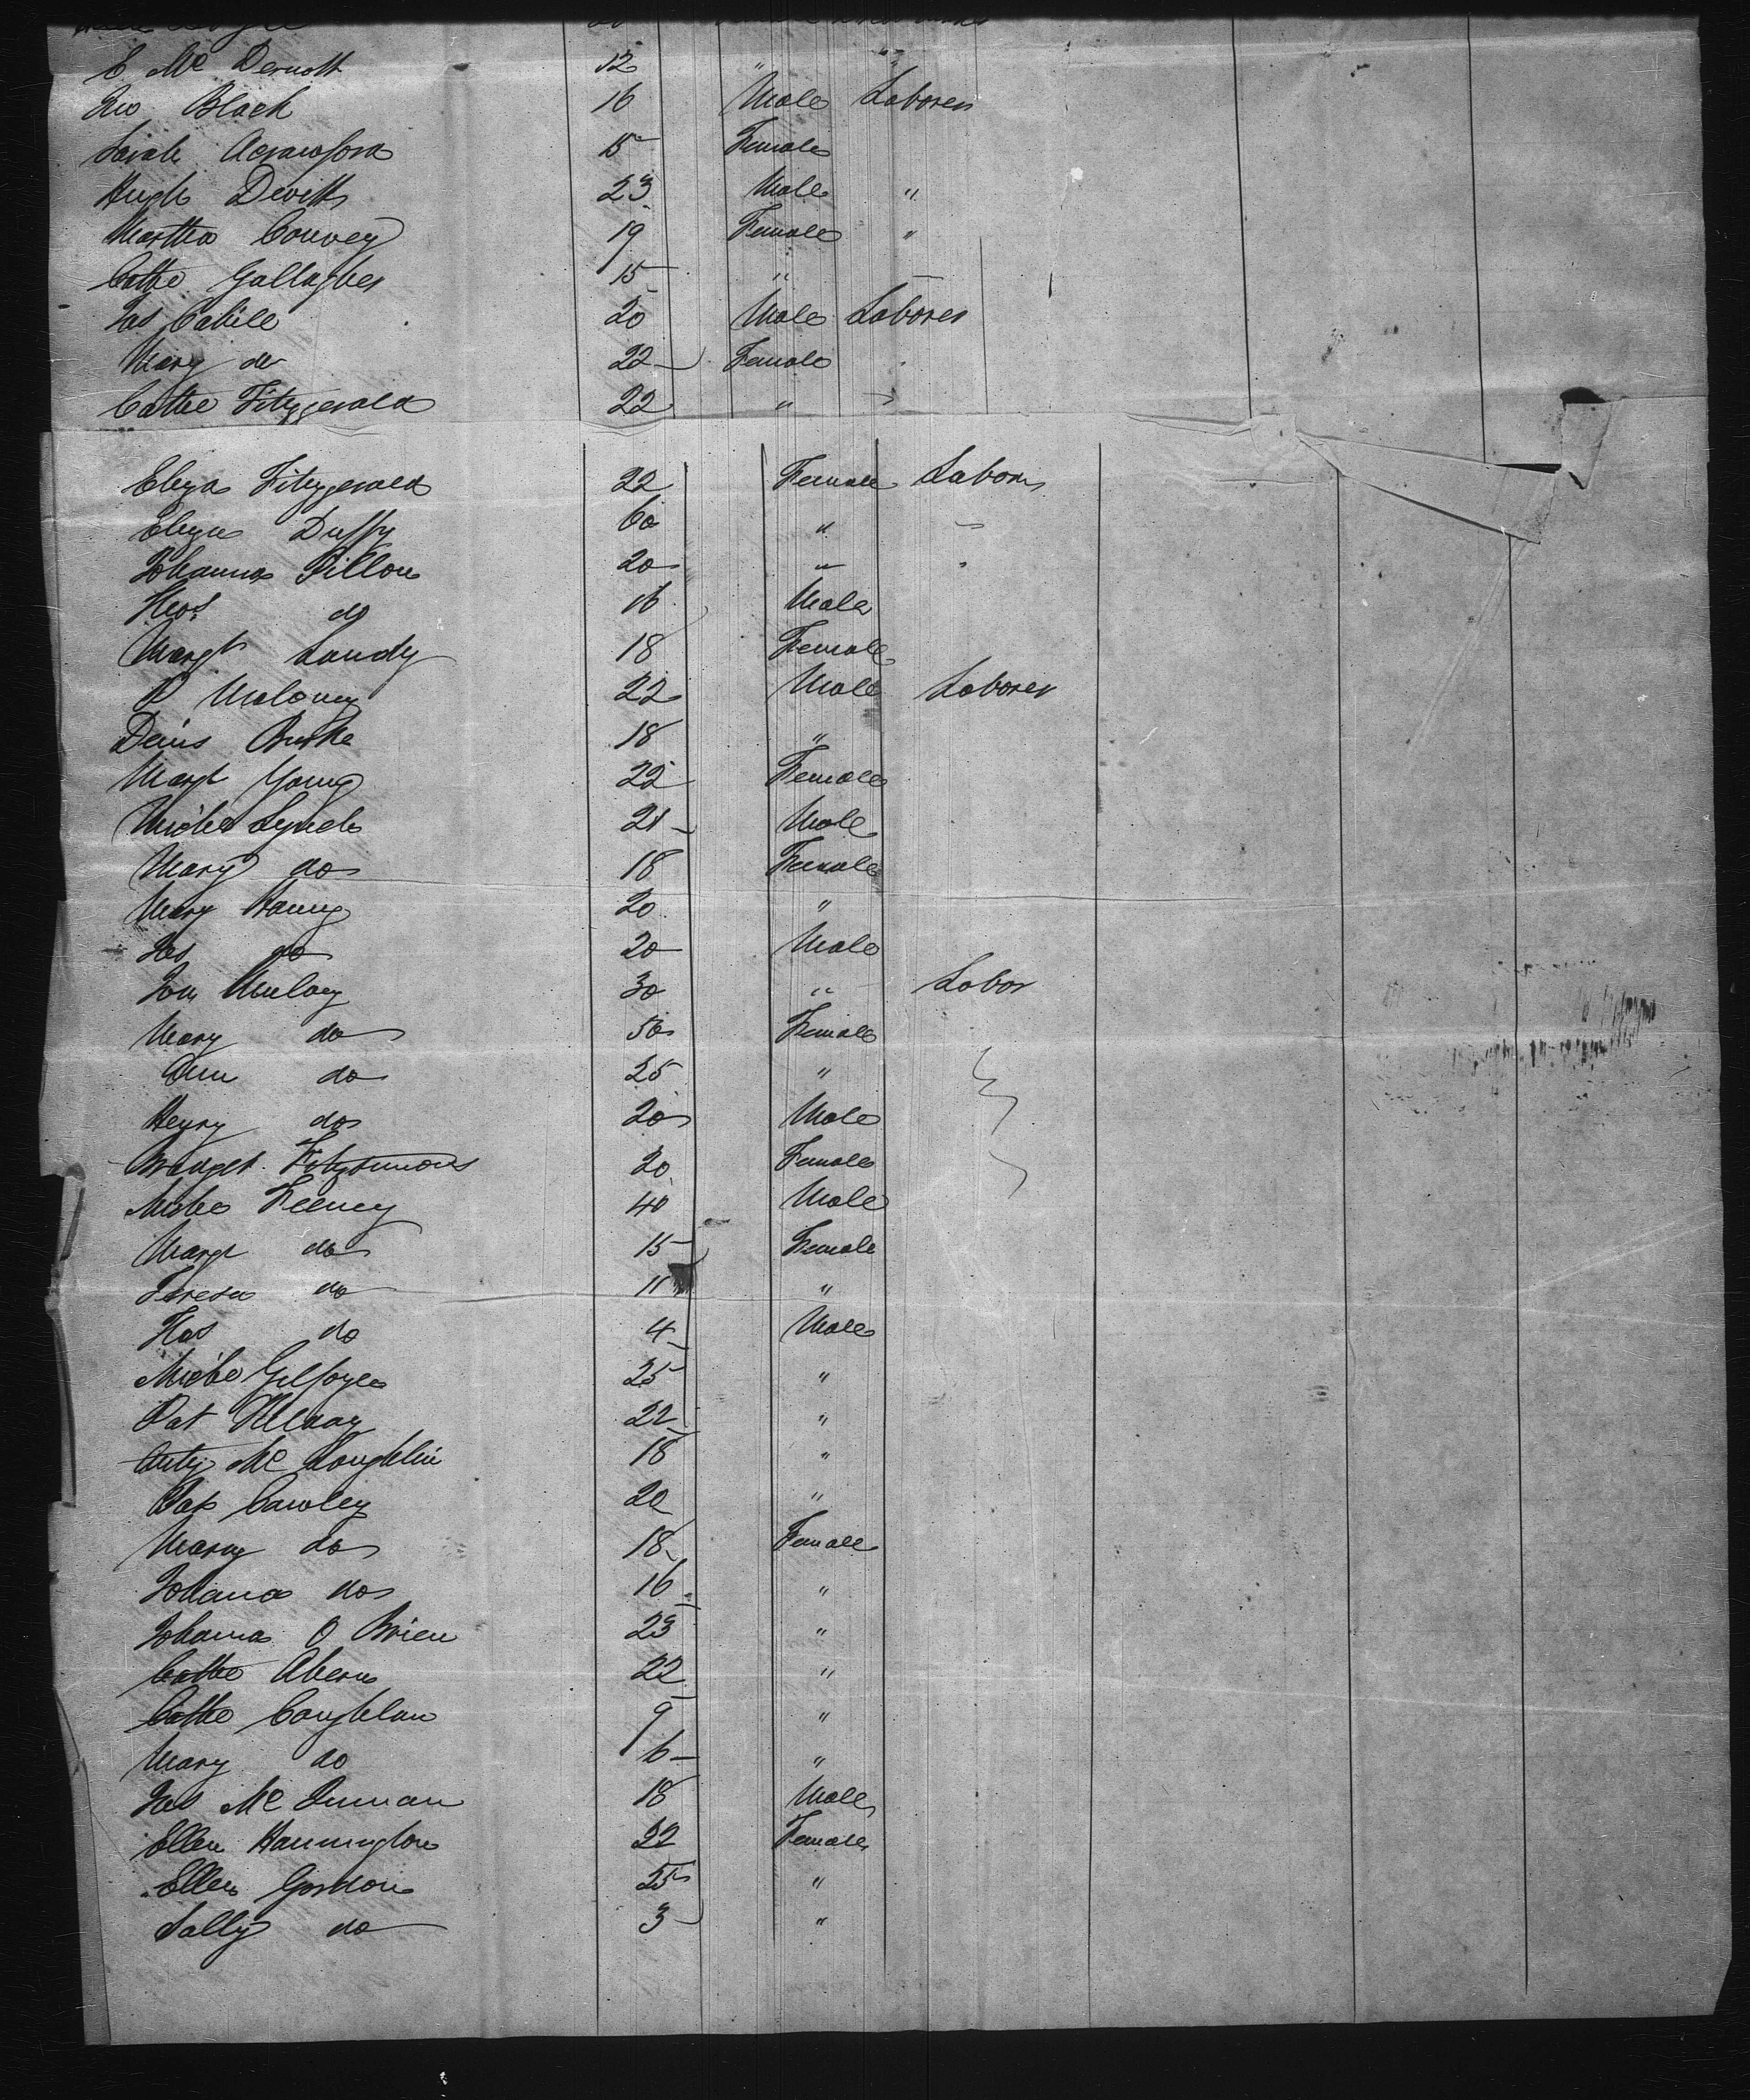 E. Mc Dermott 12 " "
Jno Black 16 Male Laborer
Sarah Acrawford 15 Female
Hugh Devitt 23 Male "
Martha Convey 19 Female "
Cathe Gallagher 15 "
Jas Cahill 20 Male Laborer
Mary do 22 Female
Cathe Fitzgerald 22 "
Eliza Fitzgerald 22 Female Labor
Eliza Duffy 60 "
Johanna Dillon 20 "
Thos do 16 Male
Margt Landy 18 Female
P Maloney 22 Male Laborer
Denis Burke 18 "
Margt Young 22 Female
Miche Lynch 21 Male
Mary do 18 Female
Mary 20 "
Jas do 20 Male
30 " Labor
Mary do 50 Female
Ann do 25 "
Henry do 20 Male
Bridget Fitzsimons 20 Female
Miche Feeney 40 Male
Margt do 15 Female
Teresa do 11 "
Thos do 4 Male
Miche Gilfoyle 25 "
Pat 22 "
Anty Mc Loughlin 18 "
Pat Cawley 20 "
Mary do 18 Female
Johana do 16 "
Johanna O Brien 23 "
Cathe Ahern 22 "
Cathe Coughlan 9 "
Mary do 6 "
Jas Mc 18 Male
Ellen Hannington 22 Female
Ellen Gordon 25 "
Sally do 3 "